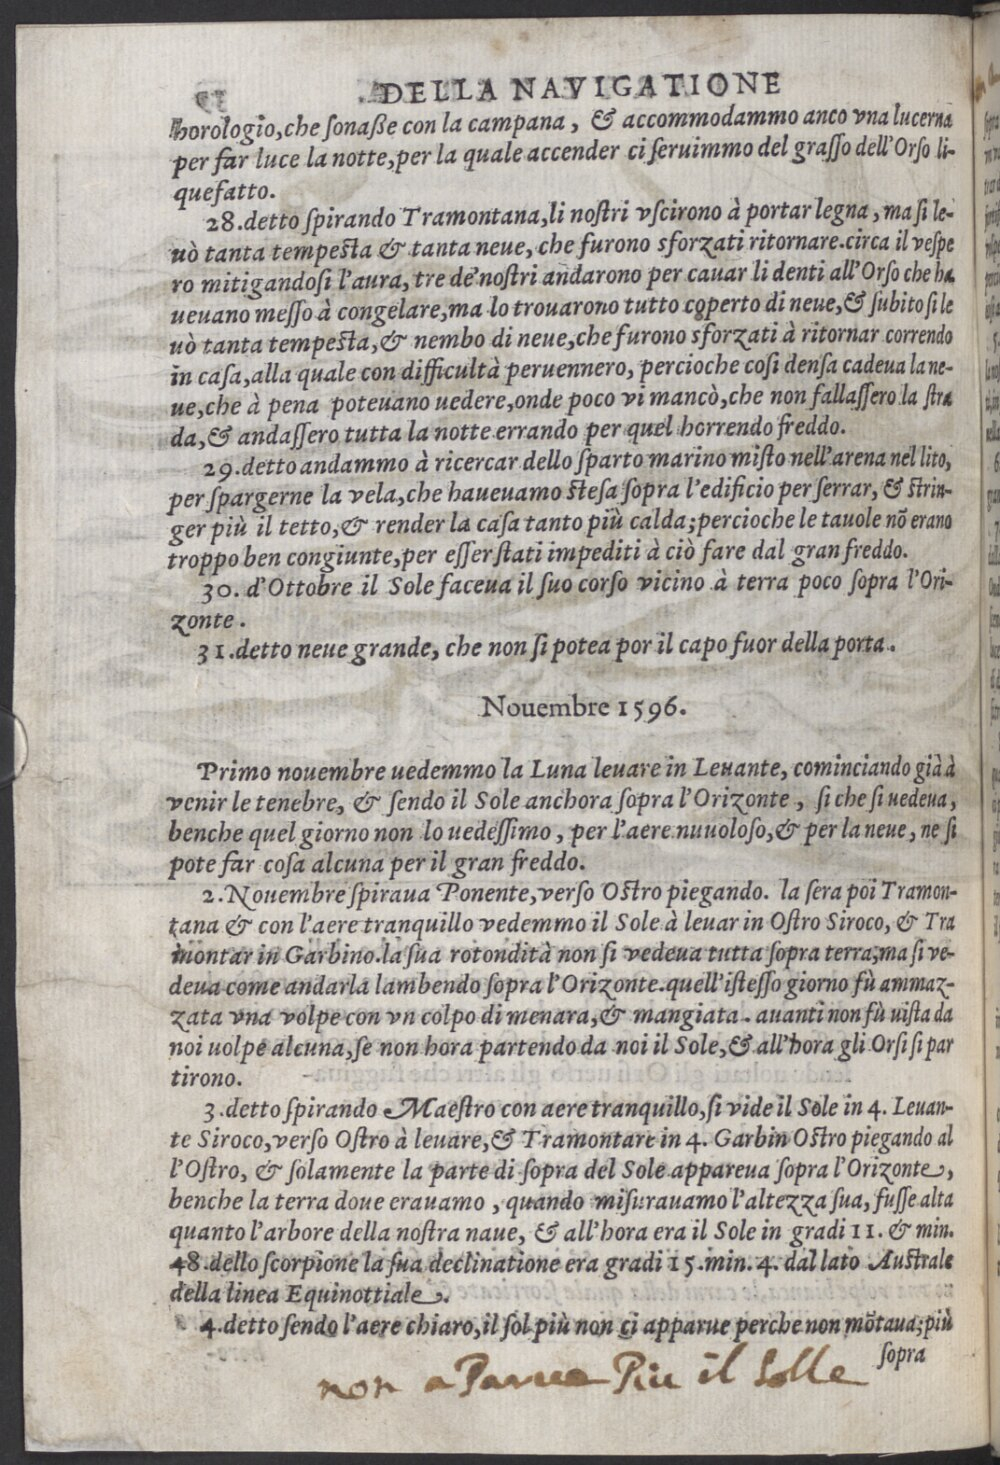 DELLA NAVIGATIONE
horologio, che sonaße con la campana, & accommodammo anco vna lucerna
per far luce la notte, per la quale accender ci seruimmo del grasso dell'Orso li-
quefatto.
28. detto spirando Tramontana, li nostri vscirono à portar legna, ma si le-
uò tanta tempesta & tanta neue, che furono sforzati ritornare. circa il vespe
ro mitigandosi l'aura, tre de' nostri andarono per cauar li denti all'Orso che ha
ueuano messo à congelare, ma lo trouarono tutto coperto di neue, & subito si le
uò tanta tempesta, & nembo di neue, che furono sforzati à ritornar correndo
in casa, alla quale con difficultà peruennero, percioche cosi densa cadeua la ne-
ue, che à pena poteuano uedere, onde poco vi mancò, che non fallassero la stra
da, & andassero tutta la notte errando per quel horrendo freddo.
29. detto andammo à ricercar dello sparto marino misto nell'arena nel lito,
per spargerne la vela, che haueuamo stesa sopra l'edificio per serrar, & strin-
ger più il tetto, & render la casa tanto più calda; percioche le tauole nō erano
troppo ben congiunte, per esser stati impediti à ciò fare dal gran freddo.
30. d'Ottobre il Sole faceua il suo corso vicino à terra poco sopra l'Ori-
zonte.
31. detto neue grande, che non si potea por il capo fuor della porta.
Nouembre 1596.
Primo nouembre uedemmo la Luna leuare in Leuante, cominciando già à
venir le tenebre, & sendo il Sole anchora sopra l'Orizonte, si che si uedeua,
benche quel giorno non lo uedessimo, per l'aere nuuoloso, & per la neue, ne si
pote far cosa alcuna per il gran freddo.
2. Nouembre spiraua Ponente, verso Ostro piegando. la sera poi Tramon-
tana & con l'aere tranquillo vedemmo il Sole à leuar in Ostro Siroco, & Tra
montar in Garbino. la sua rotondità non si vedeua tutta sopra terra; ma si ve-
deua come andarla lambendo sopra l'Orizonte. quell'istesso giorno fù ammaz-
zata vna volpe con vn colpo di menara, & mangiata. auanti non fù uista da
noi uolpe alcuna, se non hora partendo da noi il Sole, & all'hora gli Orsi si par
tirono.
3. detto spirando Maestro con aere tranquillo, si vide il Sole in 4. Leuan-
te Siroco, verso Ostro à leuare, & Tramontare in 4. Garbin Ostro piegando al
l'Ostro, & solamente la parte di sopra del Sole appareua sopra l'Orizonte,
benche la terra doue erauamo, quando misurauamo l'altezza sua, fusse alta
quanto l'arbore della nostra naue, & all'hora era il Sole in gradi 11. & min.
48. dello scorpione la sua declinatione era gradi 15. min. 4. dal lato Australe
della linea Equinottiale.
4. detto sendo l'aere chiaro, il sol più non ci apparue perche non mōtaua; più
sopra
non a Parue Piu il Solle